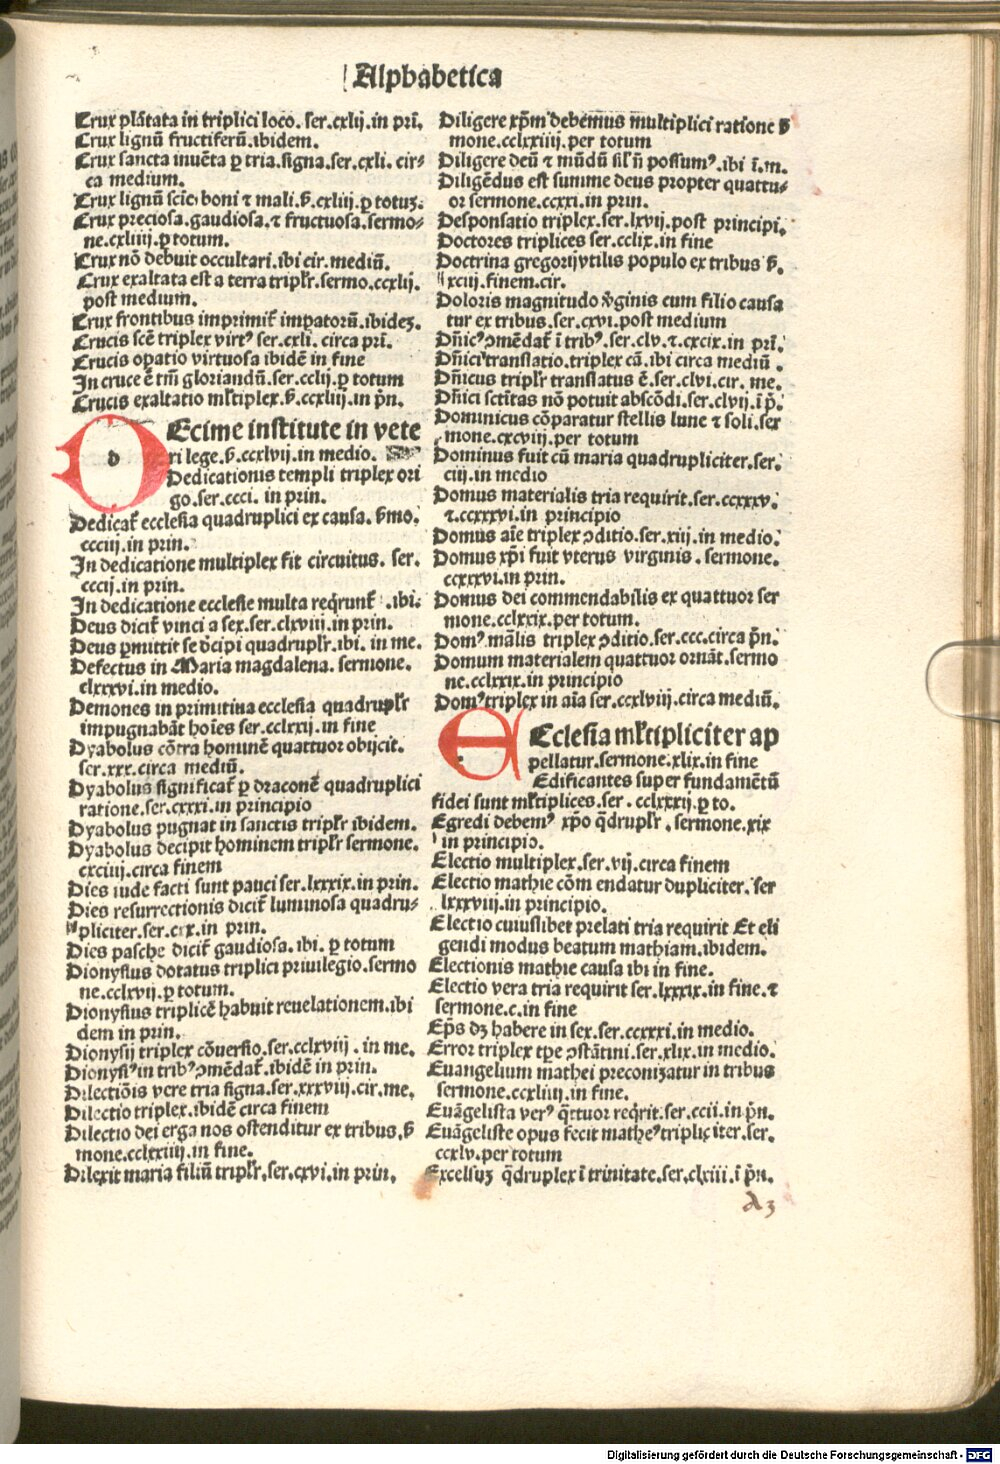 Alphabetica
Crux plãtata in triplici loco. ser.cxlij.in prĩ.
Crux lignũ fructiferũ.ibidem.
Crux sancta inuẽta ꝑ tria.signa.ser.cxli. cir⸗
ca medium.
Crux lignũ sciẽ boni ⁊ mali.ẜ.cxliij.ꝑ totuꝫ.
Crux preciosa.gaudiosa.⁊ fructuosa.sermo⸗
ne.cxliiij.ꝑ totum.
Crux nõ debuit occultari.ibi cir.mediũ.
Crux exaltata est a terra triplr̃.sermo.ccxlij.
post medium.
Crux frontibus imprimit̃ impatorũ.ibideꝫ.
Crucis scẽ triplex virtꝰ ser.cxli. circa prĩ.
Crucis oꝑatio virtuosa ibidẽ in fine
In cruce ẽ tm̃ gloriandũ.ser.cclij.ꝑ totum
Crucis exaltatio mlt̃iplex.ẜ.ccxliij.in pñ.
d
Ecime institute in vete
ri lege.ẜ.ccxlvij.in medio.
Dedicationis templi triplex ori
go.ser.ccci. in prin.
Dedicat̃ ecclesia quadruplici ex causa. ẜmo.
ccciij.in prin.
In dedicatione multiplex fit circuitus. ser.
cccij.in prin.
In dedicatione ecclesie multa reqͥrunt̃ .ibi.
Deus dicit̃ vinci a sex.ser.clxviij.in prin.
Deus ꝑmittit se dc̃ipi quadruplr̃.ibi. in me.
Defectus in Maria magdalena. sermone.
clxxxvi.in medio.
Demones in primitiua ecclesia quadruplr̃
impugnabãt hoĩes ser.cclxxij.in fine
Dyabolus cõtra hominẽ quattuor obijcit.
ser.xxx.circa mediũ.
Dyabolus significat̃ ꝑ draconẽ quadruplici
ratione.ser.cxxxi.in principio
Dyabolus pugnat in sanctis triplr̃ ibidem.
Dyabolus decipit hominem triplr̃ sermone.
cxciiij.circa finem
Dies iude facti sunt pauci ser.lxxxix.in prin.
Dies resurrectionis dicit̃ luminosa quadru⸗
pliciter.ser.cix.in prin.
Dies pasche dicit̃ gaudiosa.ibi. ꝑ totum
Dionysius dotatus triplici priuilegio.sermo
ne.cclxvij.ꝑ totum.
Dionysius triplicẽ habuit reuelationem.ibi
dem in prin.
Dionysij triplex cõuersio.ser.cclxviij . in me.
Dionysiꝰ in tribꝰ ꝯmẽdat̃.ibidẽ in prin.
Dilectiõis vere tria signa.ser.xxxviij.cir.me.
Dilectio triplex.ibidẽ circa finem
Dilectio dei erga nos ostenditur ex tribus.ẜ
mone.cclxxiiij.in fine.
Dilexit maria filiũ triplr̃.ser.cxvi.in prin.
Diligere xp̃m debemus multiplici ratione ẜ
mone.cclxxiiij.per totum
Diligere deũ ⁊ mũdũ sil̃ ñ possumꝰ.ibi ĩ.m.
Diligẽdus est summe deus propter quattu⸗
or sermone.ccxxi.in prin.
Desponsatio triplex.ser.lxvij.post principi.
Doctores triplices ser.cclix.in fine
Doctrina gregorij vtilis populo ex tribus ẜ.
xciij.finem.cir.
Doloris magnitudo ṽginis cum filio causa
tur ex tribus.ser.cxvi.post medium
Dñicꝰ ꝯmẽdat̃ ĩ tribꝰ.ser.clv.⁊.cxcix.in prĩ.
Dñici translatio.triplex cã.ibi circa mediũ .
Dñicus triplr̃ translatus ẽ.ser.clvi.cir. me.
Dñici sctĩtas nõ potuit abscõdi.ser.clvij.ĩ p̃.
Dominicus cõparatur stellis lune ⁊ soli.ser
mone.cxcviij.per totum
Dominus fuit cũ maria quadrupliciter.ser.
ciij.in medio
Domus materialis tria requirit.ser.ccxxxv.
⁊.ccxxxvi.in principio
Domus aĩe triplex ꝯditio.ser.xij.in medio.
Domus xp̃i fuit vterus virginis . sermone.
ccxxxvi.in prin.
Domus dei commendabilis ex quattuor ser
mone.cclxxix.per totum.
Domꝰ mãlis triplex ꝯditio.ser.ccc.circa pñ.
Domum materialem quattuor ornãt.sermo
ne.cclxxix.in principio
Domꝰ triplex in aĩa ser.ccxlviij.circa mediũ.
Ecclesia mlt̃ipliciter ap
pellatur.sermone.xlix.in fine
Edificantes super fundamẽtũ
fidei sunt mlt̃iplices.ser . cclxxxij.ꝑ to.
Egredi debemꝰ xp̃o qͣdruplr̃ . sermone.xix
in principio.
Electio multiplex.ser.vij.circa finem
Electio mathie cõm endatur dupliciter. ser
lxxxviij.in principio.
Electio cuiuslibet prelati tria requirit Et eli
gendi modus beatum mathiam.ibidem.
Electionis mathie causa ibi in fine.
Electio vera tria requirit ser.lxxxix.in fine.⁊
sermone.c.in fine
Ep̃s dꝫ habere in sex.ser.ccxxxi.in medio.
Error triplex tp̃e ꝯstãtini.ser.xlix.in medio.
Euangelium mathei preconizatur in tribus
sermone.ccxliiij.in fine.
Euãgelista verꝰ qͣttuor reqͥrit.ser.ccii.in pñ.
Euãgeliste opus fecit matheꝰ tripliciter.ser.
ccxlv.per totum
Excelsuꝫ qͣdruplex ĩ trinitate.ser.clxiii.ĩ pñ.
d3
Digitalisierung gefördert durch die Deutsche Forschungsgemeinschaft - DFG